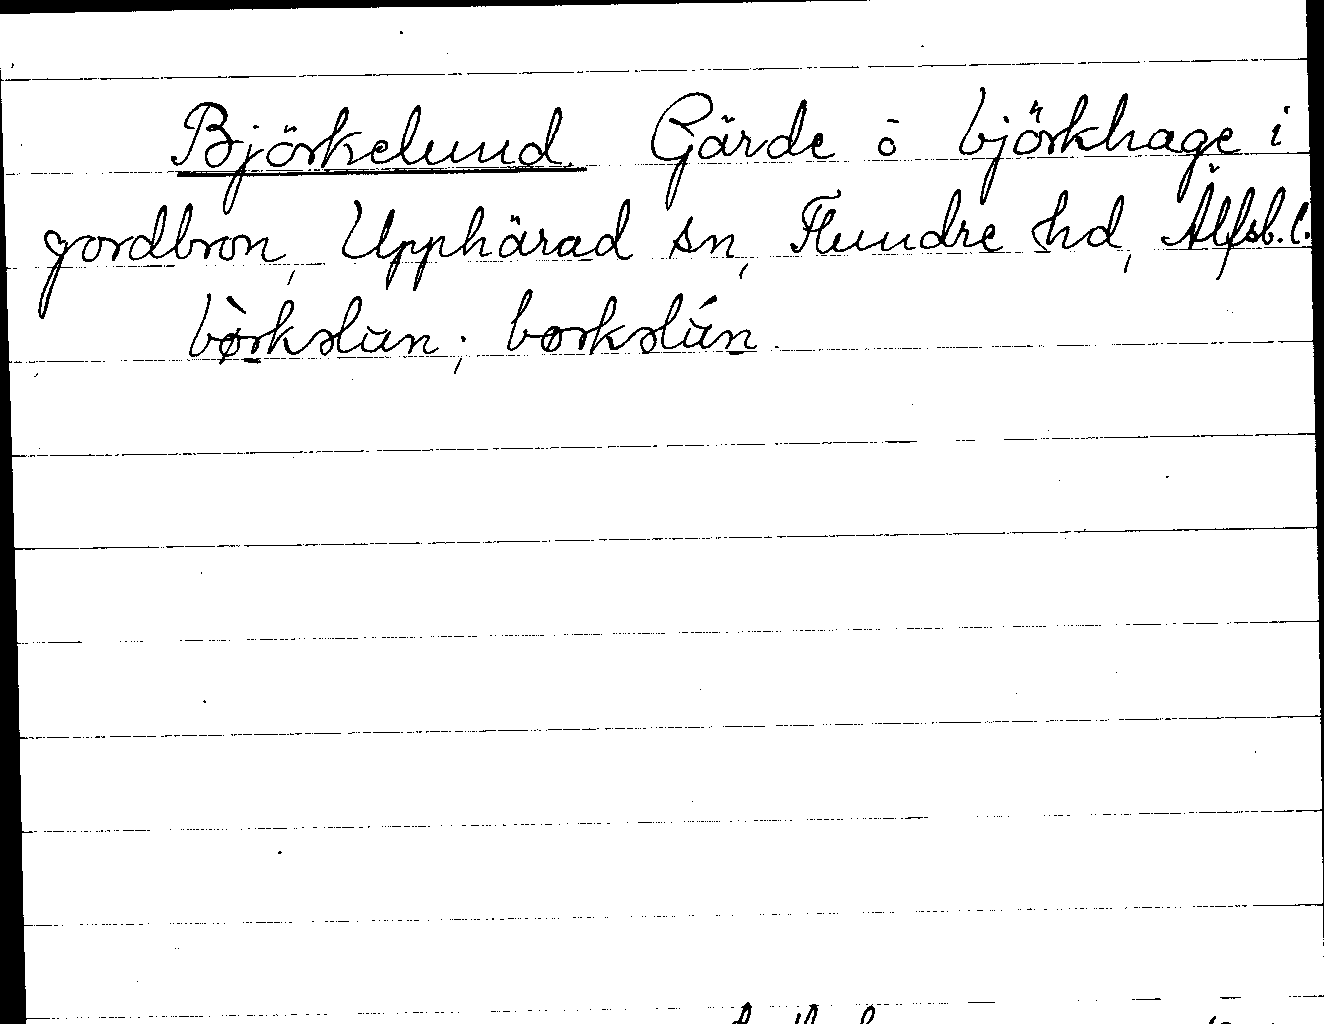 Björkelund. Gärde ō björkhage i
gordbron, Upphärad sn, Flundre hd, Älfsb. l.
bø̀rkslun; børkslún.